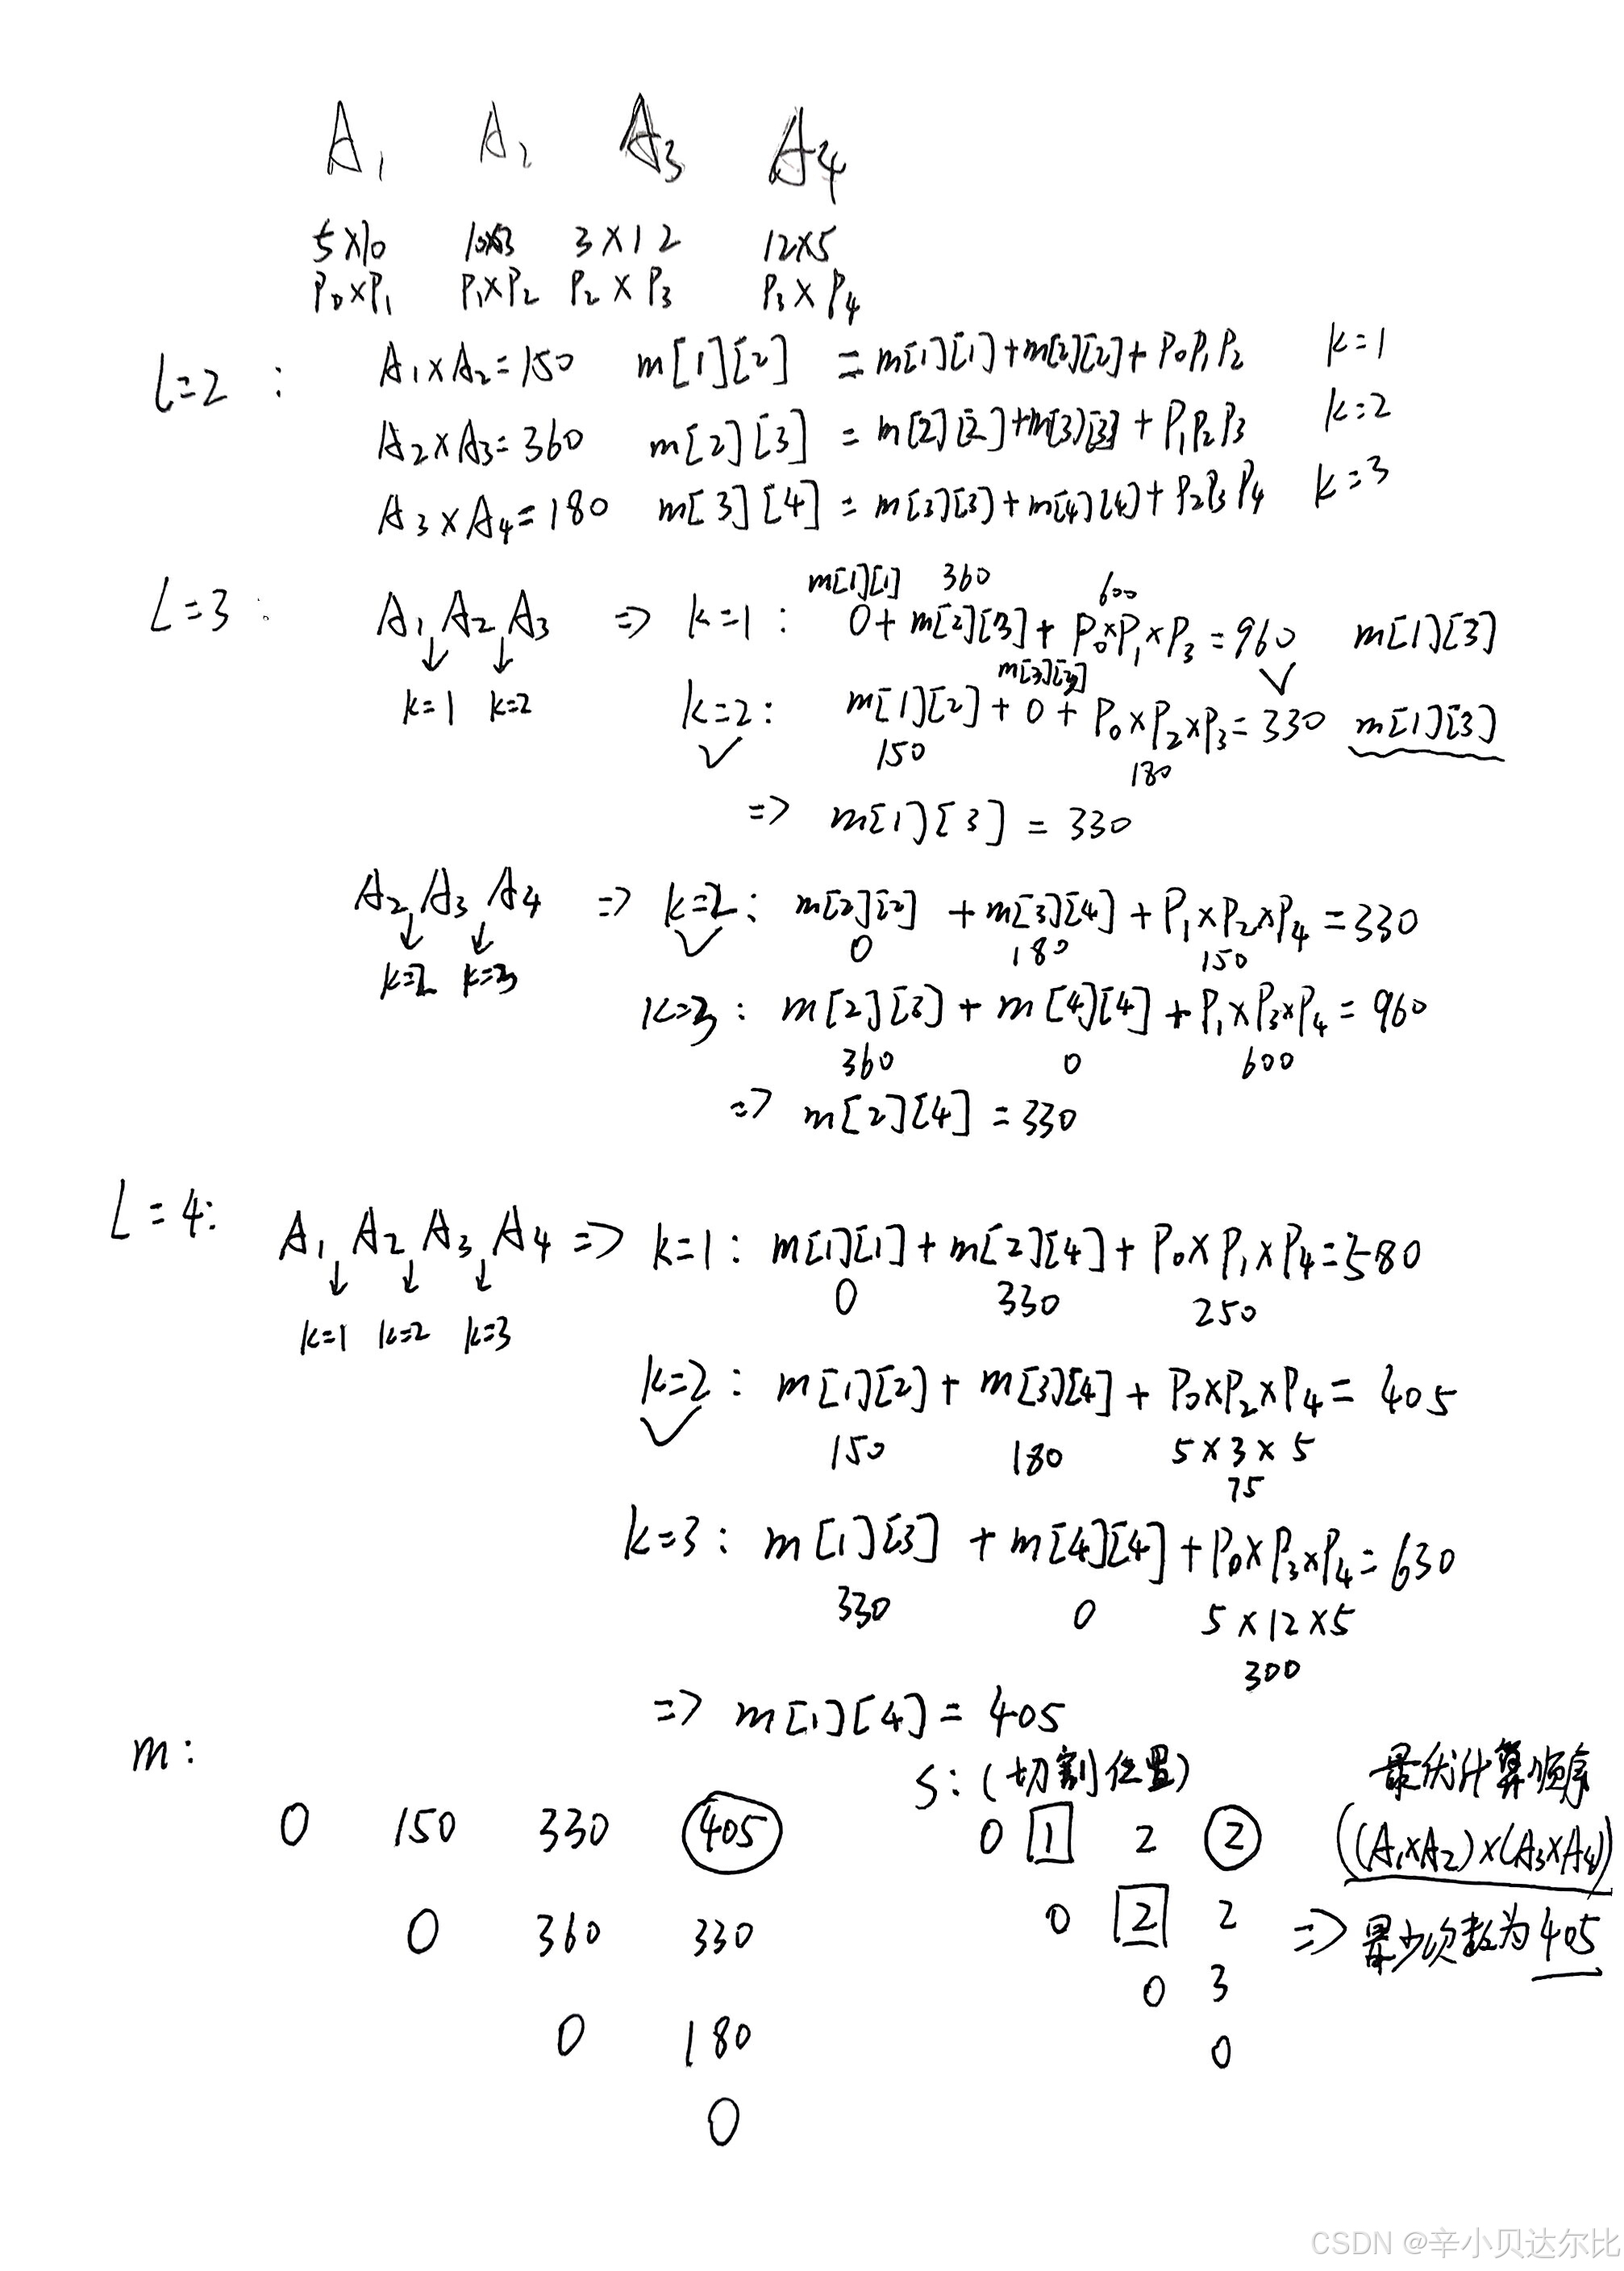 A1 A2 A3 A4
5×10 10×3 3×12 12×5
P0×P1 P1×P2 P2×P3 P3×P4
L=2 : A1×A2=150 m[1][2] =m[1][1]+m[2][2]+P0P1P2 k=1
A2×A3=360 m[2][3] =m[2][2]+m[3][3]+P1P2P3 k=2
A3×A4=180 m[3][4]=m[3][3]+m[4][4]+P2P3P4 k=3
m[1][1] 360 600
L=3: A1 A2 A3 => k=1: 0+m[2][3]+P0×P1×P3=960 m[1][3]
↓ ↓ m[3][3] ✓
k=1 k=2 k=2: m[1][2]+0+P0×P2×P3=330 m[1][3]
✓ 150 180
=> m[1][3]=330
A2 A3 A4 => k=2: m[2][2]+m[3][4]+P1×P2×P4=330
↓ ↓ ✓ 0 180 150
k=2 k=3
k=3: m[2][3]+m[4][4]+P1×P3×P4=960
360 0 600
=> m[2][4]=330
L=4: A1 A2 A3 A4 => k=1: m[1][1]+m[2][4]+P0×P1×P4=580
↓ ↓ ↓ 0 330 250
k=1 k=2 k=3
k=2: m[1][2]+m[3][4]+P0×P2×P4=405
✓ 150 180 5×3×5
75
k=3: m[1][3]+m[4][4]+P0×P3×P4=630
330 0 5×12×5
300
=> m[1][4]=405
m: S:(切割位置) 最优计算顺序
0 150 330 405 0 1 2 2 ((A1×A2)×(A3×A4))
0 360 330 0 2 2 => 最少次数为405
0 3
0 180 0
0
CSDN @辛小贝达尔比